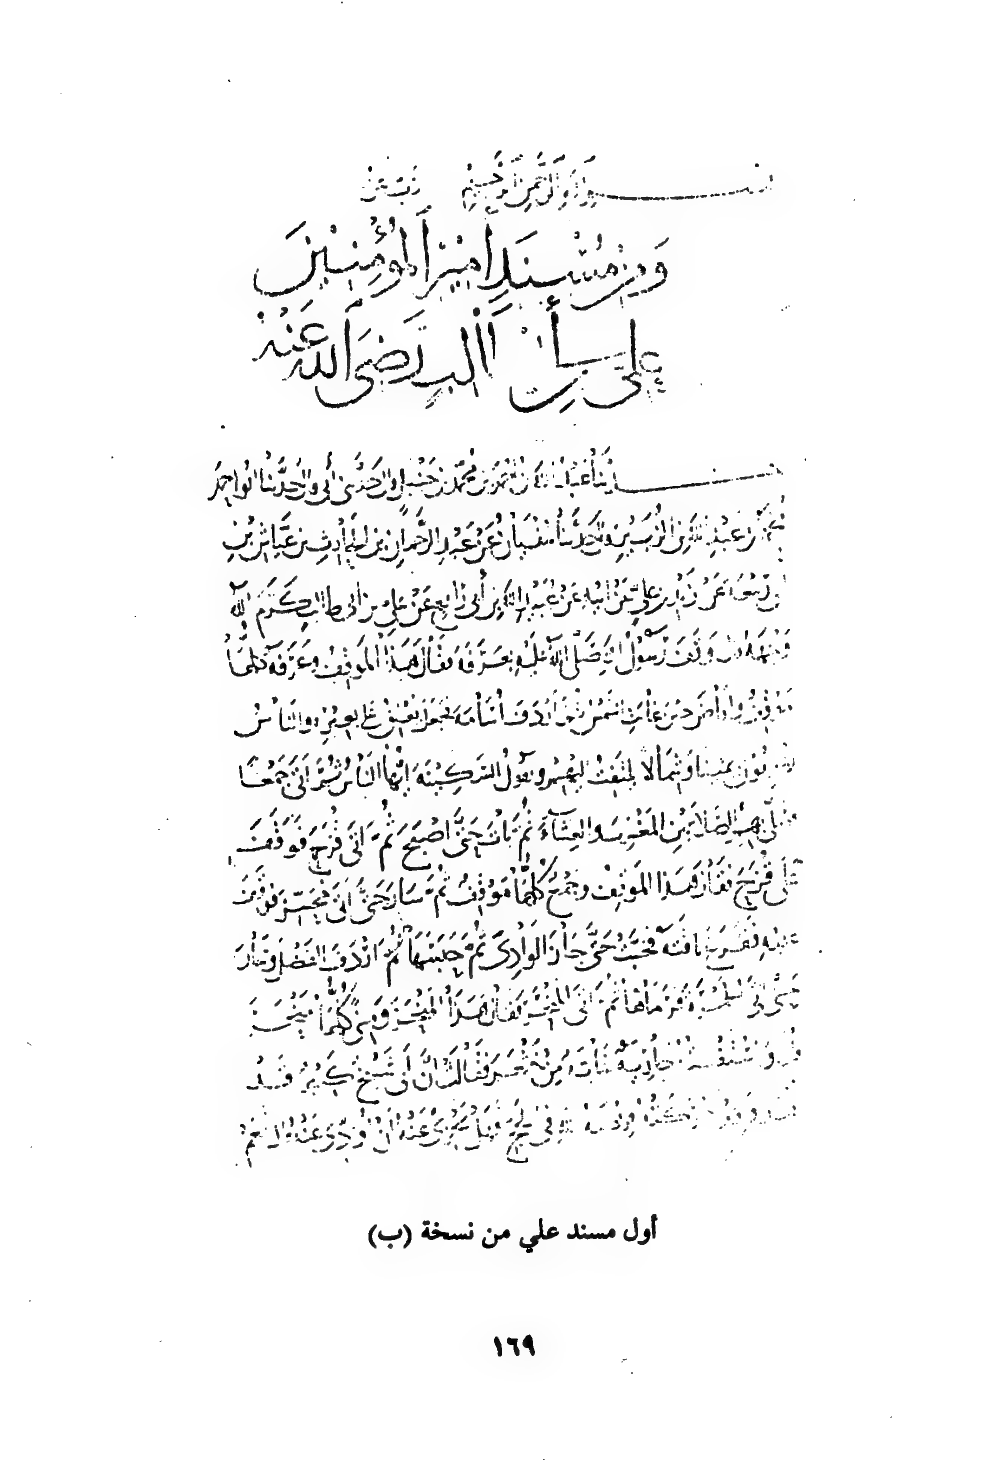 بسم الله الرحمن الرحيم رب عن
ومن مسند أمير المؤمنين
علي بن أبي طالب رضي الله عنه
حدثنا عبد الله بن أحمد بن محمد بن حنبل قال حدثني أبي قال حدثنا أبو احمد
محمد بن عبد الله بن الزبير قال حدثنا سفيان عن عبد الرحمان بن الحارث بن عياش بن
أبي ربيعة عن زيد بن علي عن أبيه عن عبيد الله بن أبي رافع عن علي بن أبي طالب كرم الله
وجهه قال وقف رسول الله صلى الله عليه بعرفة فقال هذا الموقف وعرفة كلها
موقف وأفاض حين غابت الشمس ثم أردف أسامة فجعل يعنق على بعيره والناس
يضربون يمينا وشمالا لا يلتفت إليهم ويقول السكينة أيها الناس ثم أتى جمعا
فصلى بهم الصلاتين المغرب والعشاء ثم بات حتى اصبح ثم اتى قزح فوقف
على قزح فقال هذا الموقف وجمع كلها موقف ثم سار حتى أتى محسر فوقف
عليه فقرع ناقته فخبت حتى جاز الوادي ثم حبسها ثم اردف الفضل وسار
حتى أتى الجمرة فرماها ثم اتى المنحر فقال هذا المنحر ومنى كلها منحر
قال واستفتته جارية شابة من خثعم فقالت ان أبي شيخ كبير قد
أفند وقد أدركته فريضة الله في الحج فهل يجزئ عنه أن أؤدي عنه قال نعم
أول مسند علي من نسخة (ب)
١٦٩